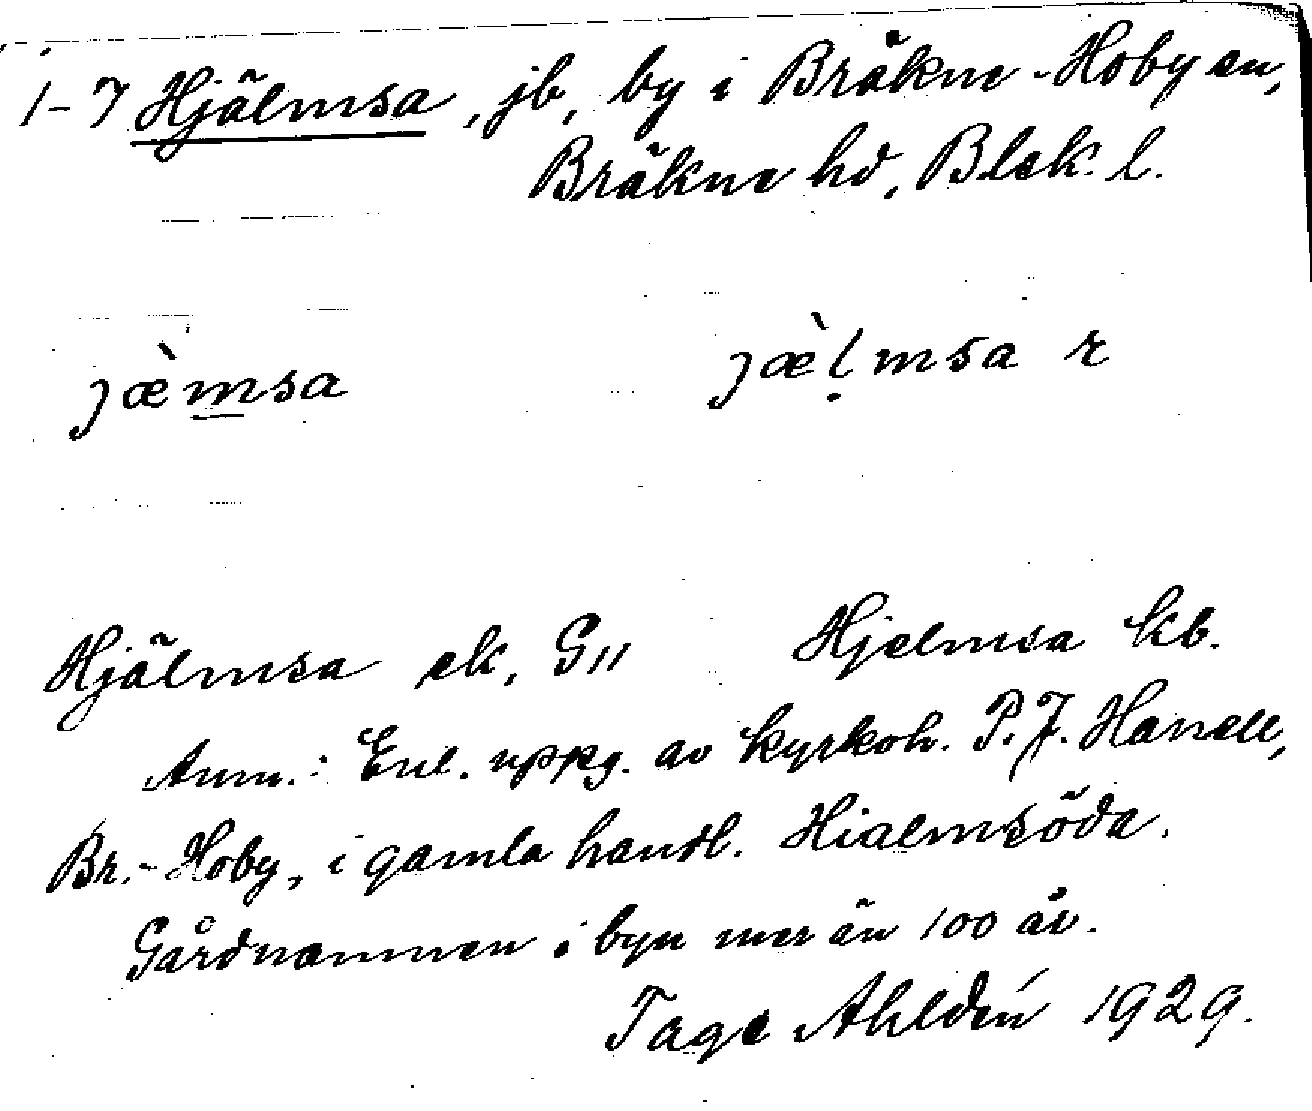 1-7 Hjälmsa, jb, by i Bräkne-Hoby sn,
Bräkne hd, Blek. l.
jæ̀m̲sa jæ̀ḷmsa r
Hjälmsa ek, G11 Hjelmsa kb.
Anm.: Enl. uppg. av kyrkoh. P. J. Hanell,
Br.-Hoby, i gamla handl. Hialmsöda.
Gårdnamnen i byn mer än 100 år.
Tage Ahldén 1929.